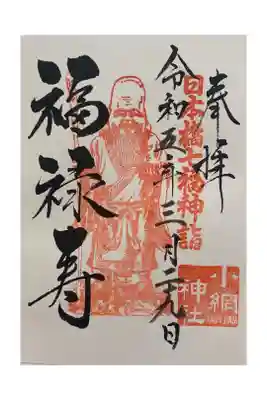 奉拝
日本橋七福神詣
令和五年三月二十九日
福禄寿
小網
神社